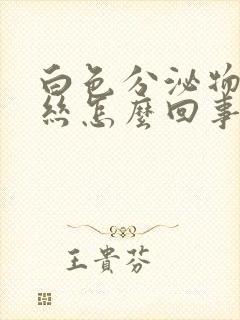 白色分泌物
絲怎麼回事
王貴芬